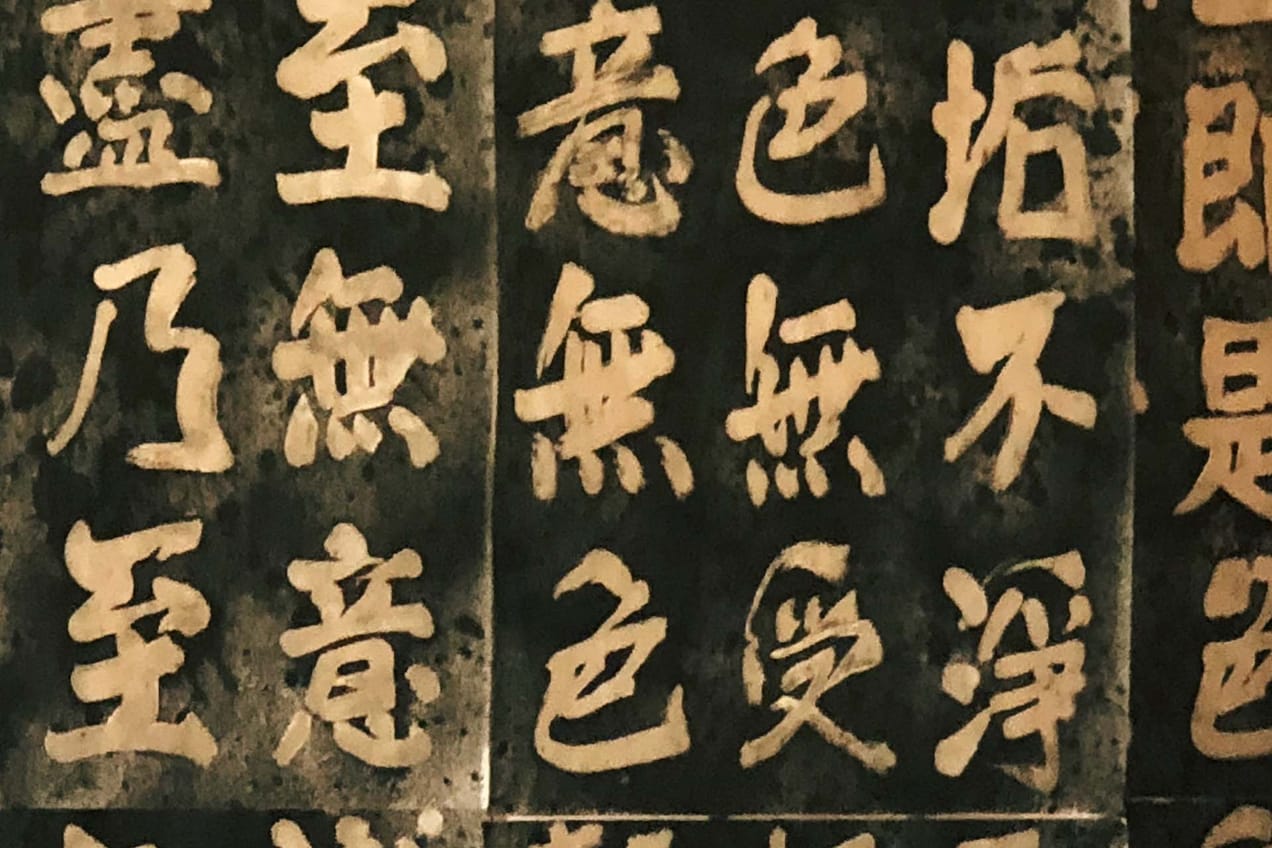 即是色
垢不淨
色無受
意無色
至無意
盡乃至